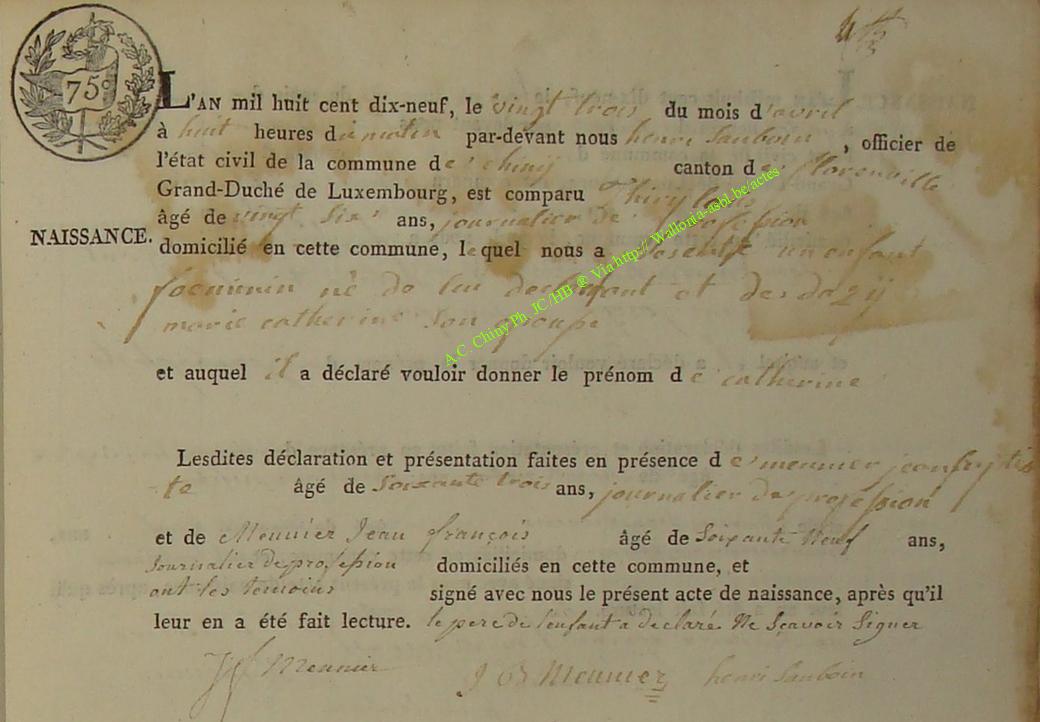 75c
L'AN mil huit cent dix-neuf, le vingt trois du mois d'avril
à huit heures du matin par-devant nous henri Sauboin, officier de
l'état civil de la commune de chiny canton de florenville
Grand-Duché de Luxembourg, est comparu Thiry
âgé de vingt Six ans, journalier de profession
NAISSANCE.
domicilié en cette commune, lequel nous a présenté un enfant
foeminin né de lui declarant et de
marie catherine Son epouse
et auquel il a déclaré vouloir donner le prénom de catherine
Lesdites déclaration et présentation faites en présence de meunier jean baptis
te âgé de Soixante trois ans, journalier de profession
et de Meunier Jean françois âgé de Soixante Neuf ans,
Journalier de profession domiciliés en cette commune, et
ont les temoins signé avec nous le présent acte de naissance, après qu'il
leur en a été fait lecture. le pere de l'enfant a declaré Ne Sçavoir Signer
Meunier J B Meunier henri Sauboin
A.C. Chiny Ph. JC/HB @ Via http:// Wallonia-asbl.be/actes